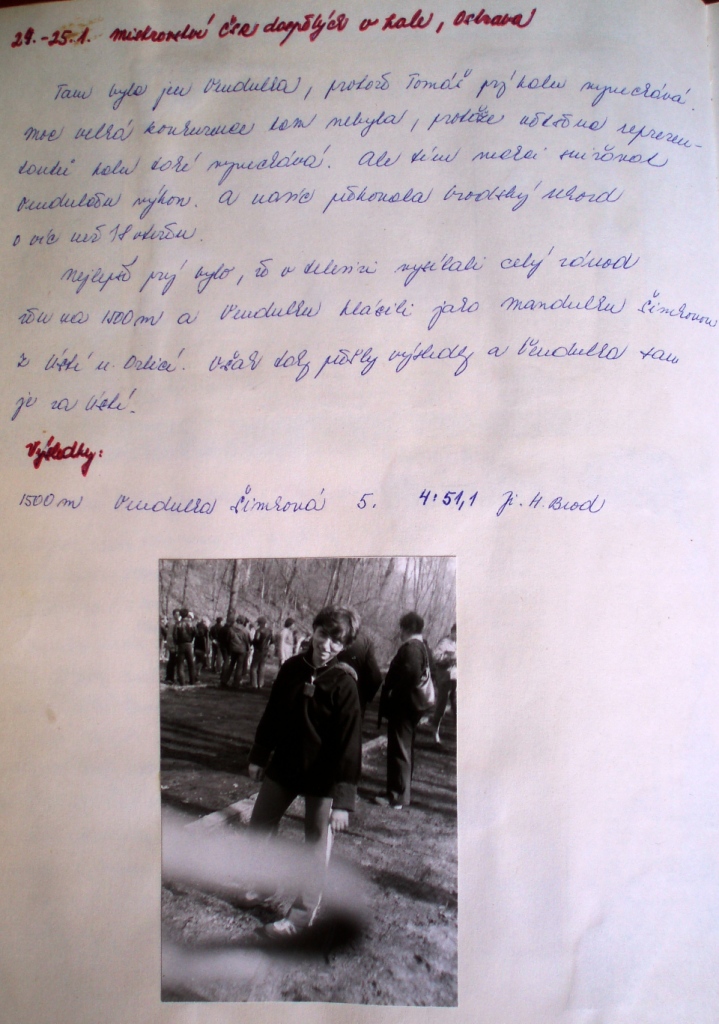 24.-25.1. Mistrovství ČSR dospělých v hale, Ostrava
Tam byla jen Vendulka, protože Tomáš prý halu vynechává.
Moc velká konkurence tam nebyla, protože většina reprezen-
tantů halu také vynechává. Ale tím nechci snižovat
Vendulčin výkon. A navíc překonala brodský rekord
o víc než 18 vteřin.
Nejlepší prý bylo, že v televizi vysílali celý závod
žen na 1500 m a Vendulku hlásili jako Mandulku Šimkovou
z Ústí n. Orlicí. Však taky přišly výsledky a Vendulka tam
je za Ústí.
Výsledky:
1500 m Vendulka Šimková 5. 4:51,1 Ji. H. Brod